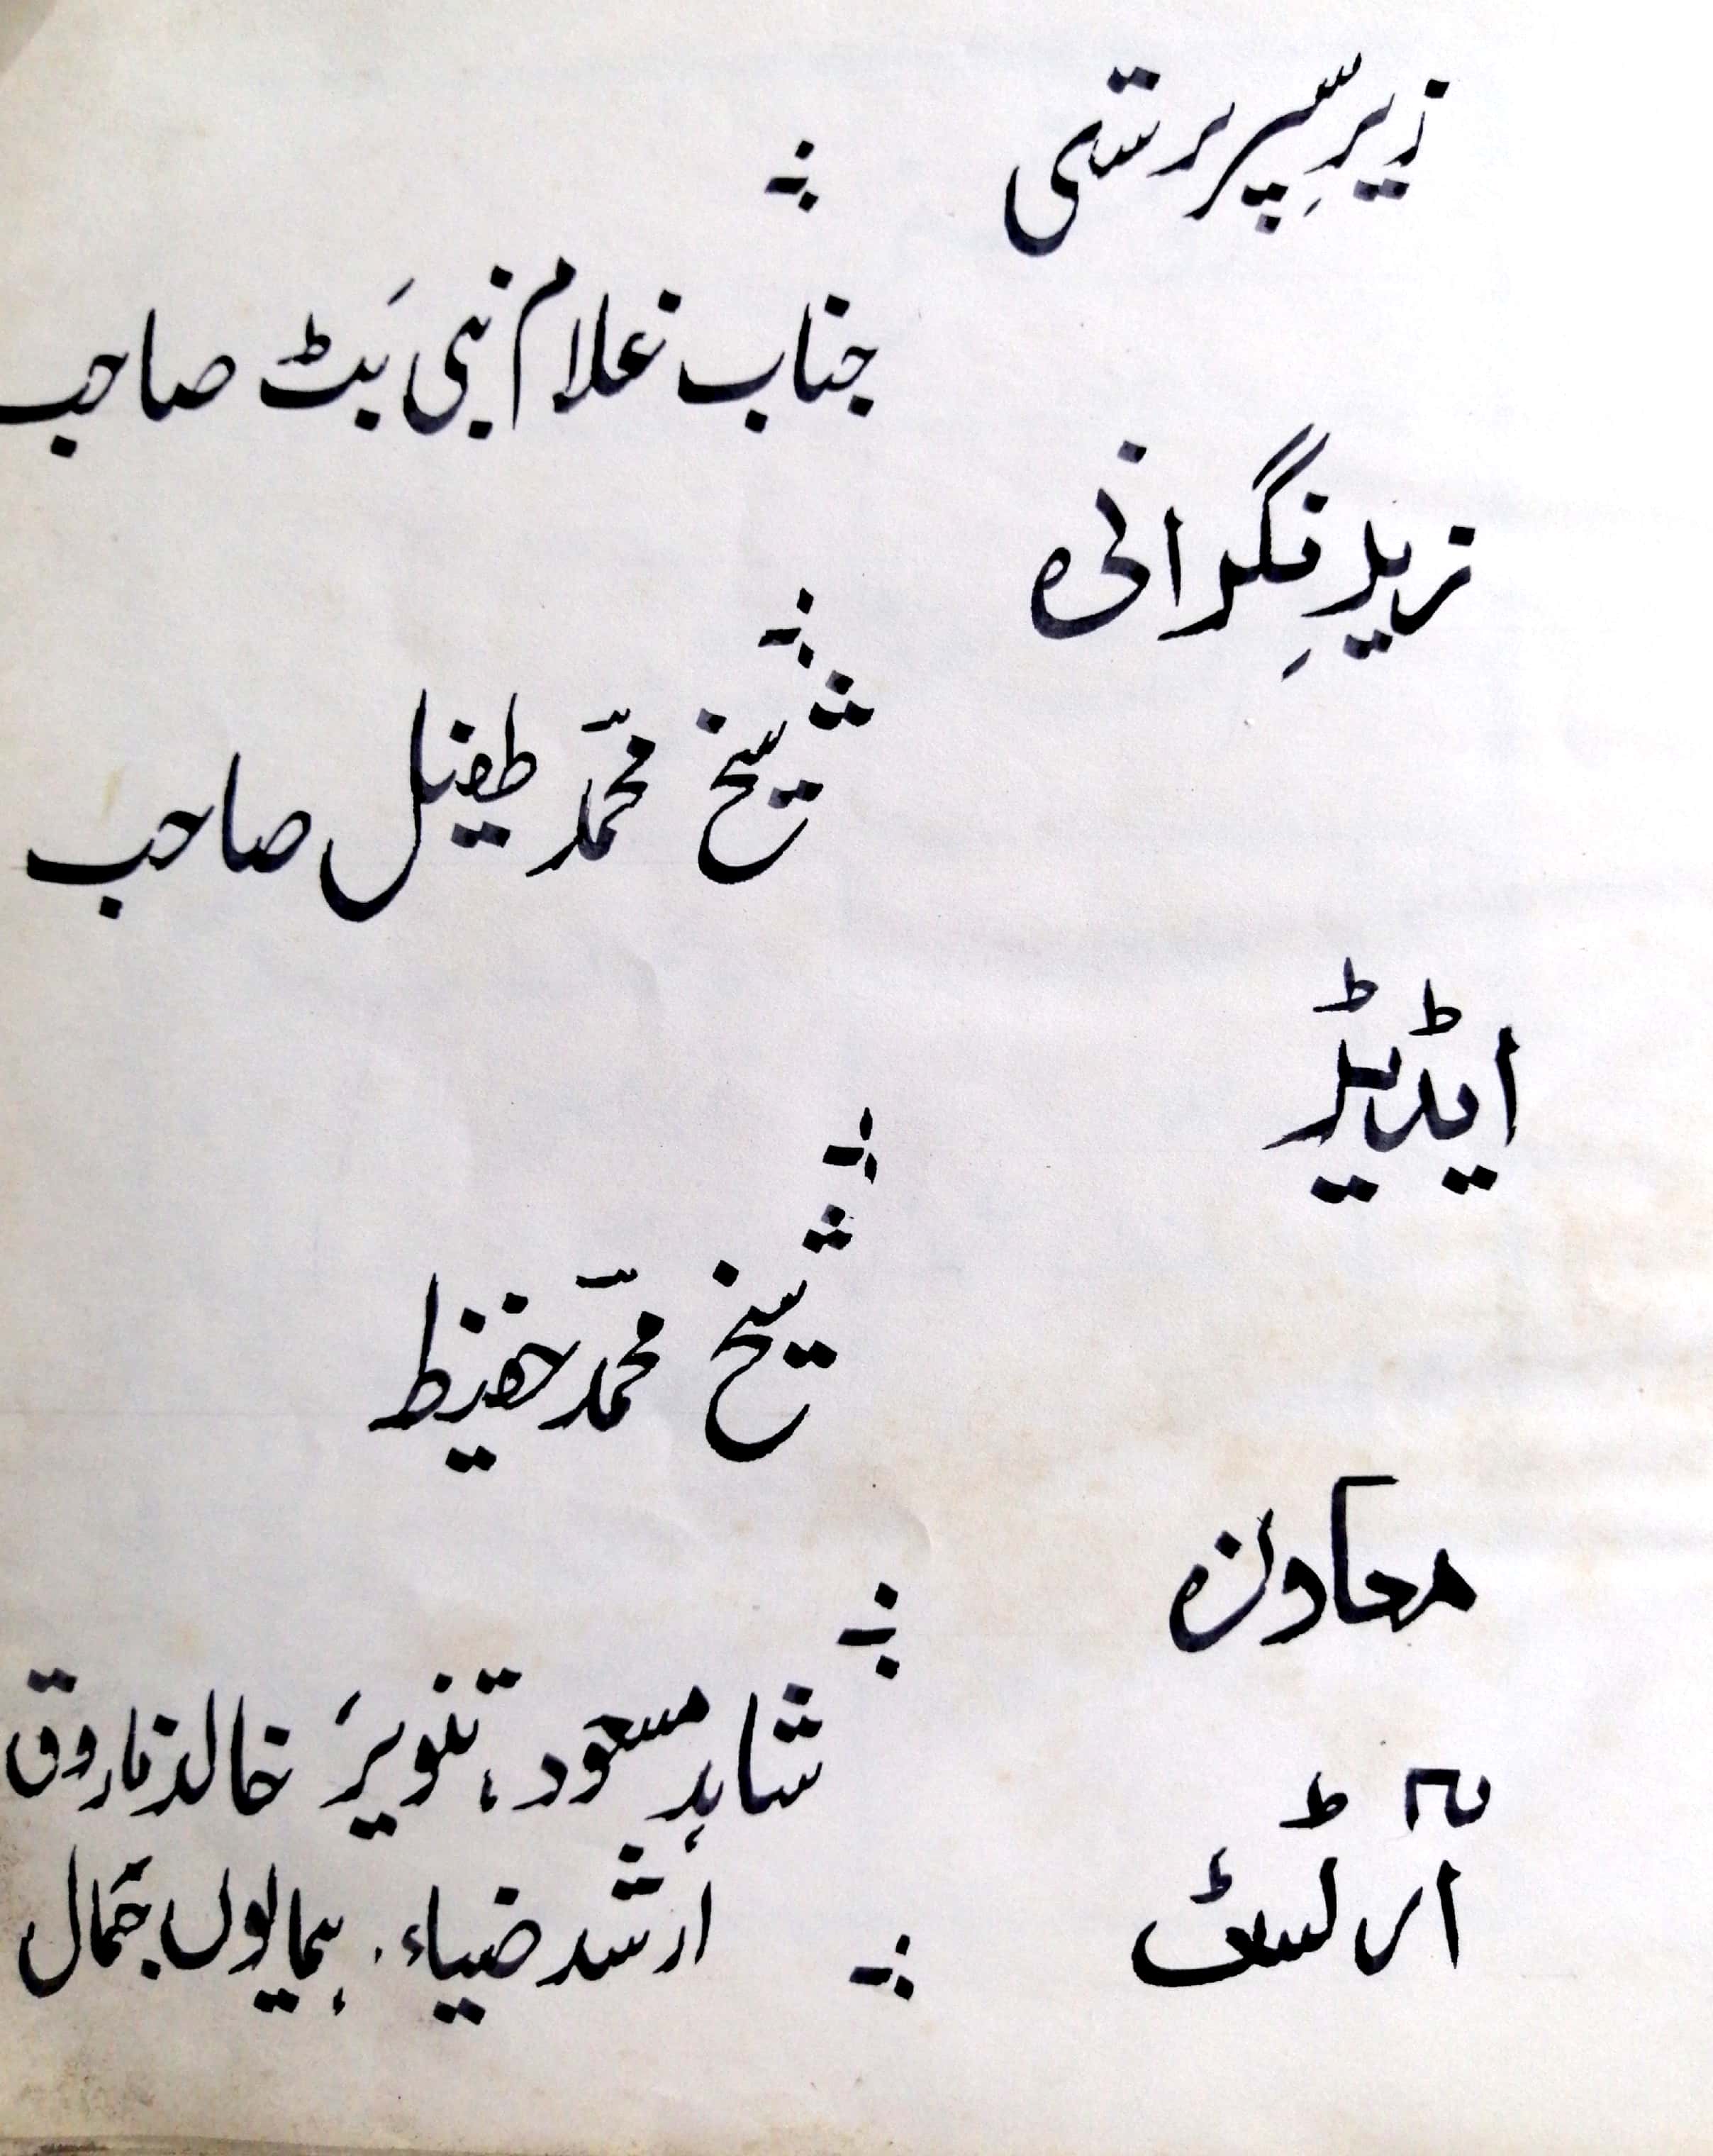 زیرِ سّرپرستی :-
جناب غلام نبی بَٹ صاحب
زیرِ نگرانی :-
شیخ محمّد طفیل صاحب
ایڈیٹر :-
شیخ محمّد حفیظ
معاون :-
شاہد مسعود، تنویر، خالد فاروق
آرٹسٹ :- ارشد ضیاء، ہمایوں جمال